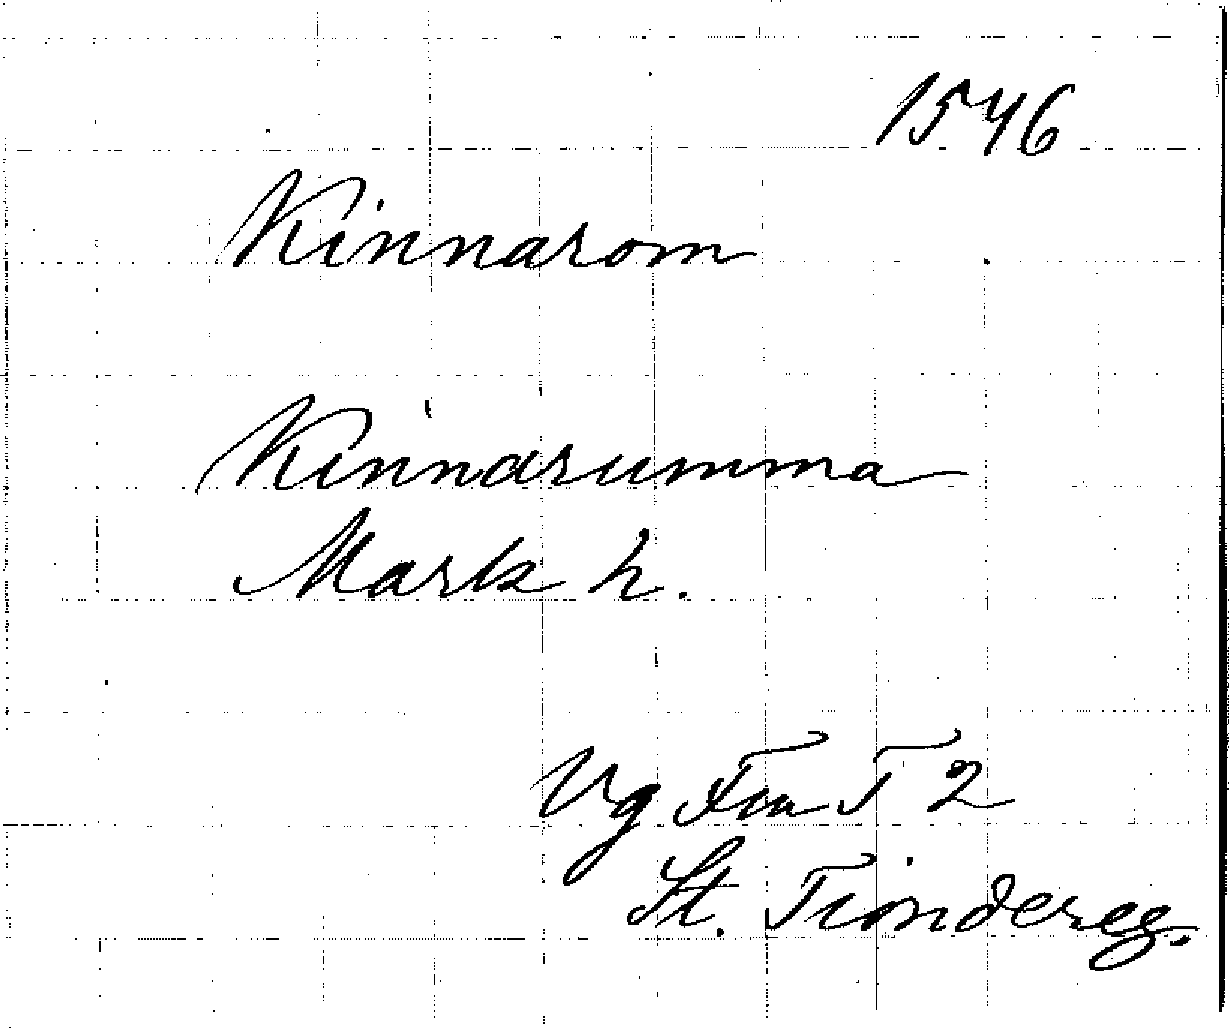 1546
Kinnarom
Kinnarumma
Mark h.
Vg Fra T 2
St. Tiondereg.